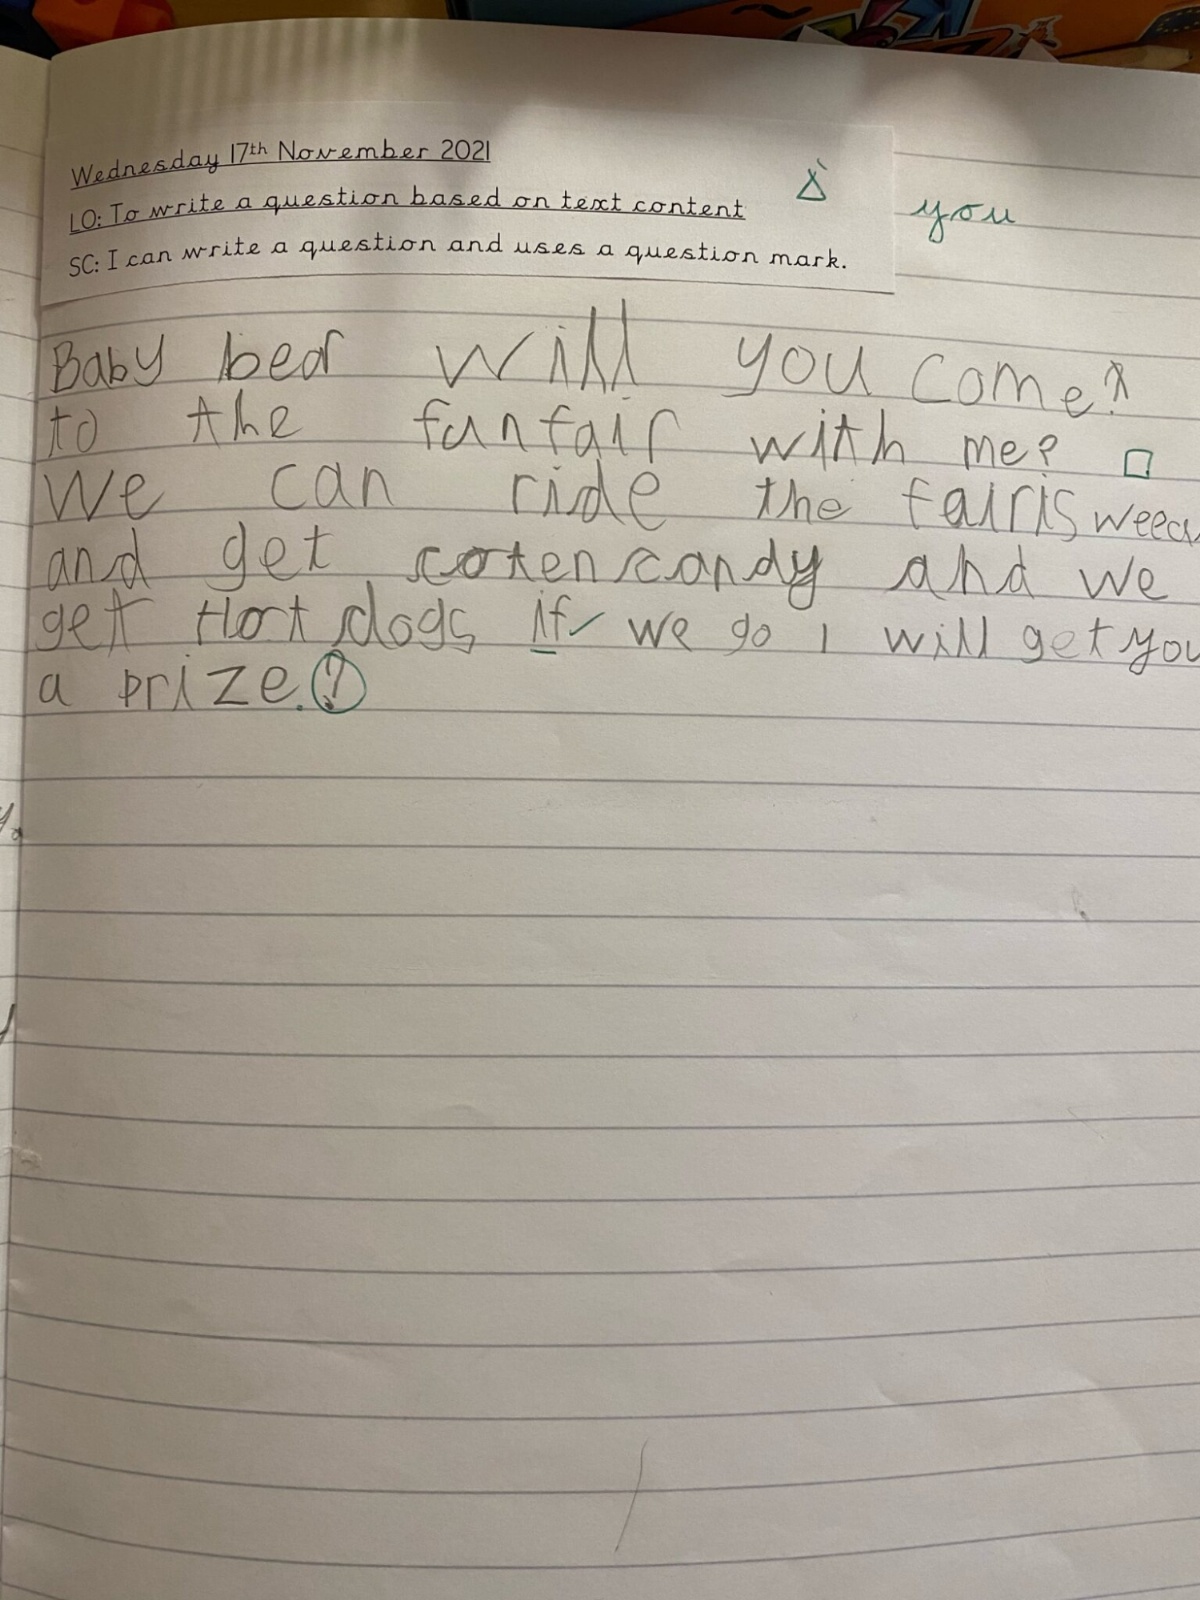 Wednesday 17th November 2021
LO: To write a question based on text content
SC: I can write a question and uses a question mark.
you
Baby bear will you come?
to the funfair with me?
We can ride the fairis
and get coten candy and we
get Hot dogs if we go I will get you
a prize.?